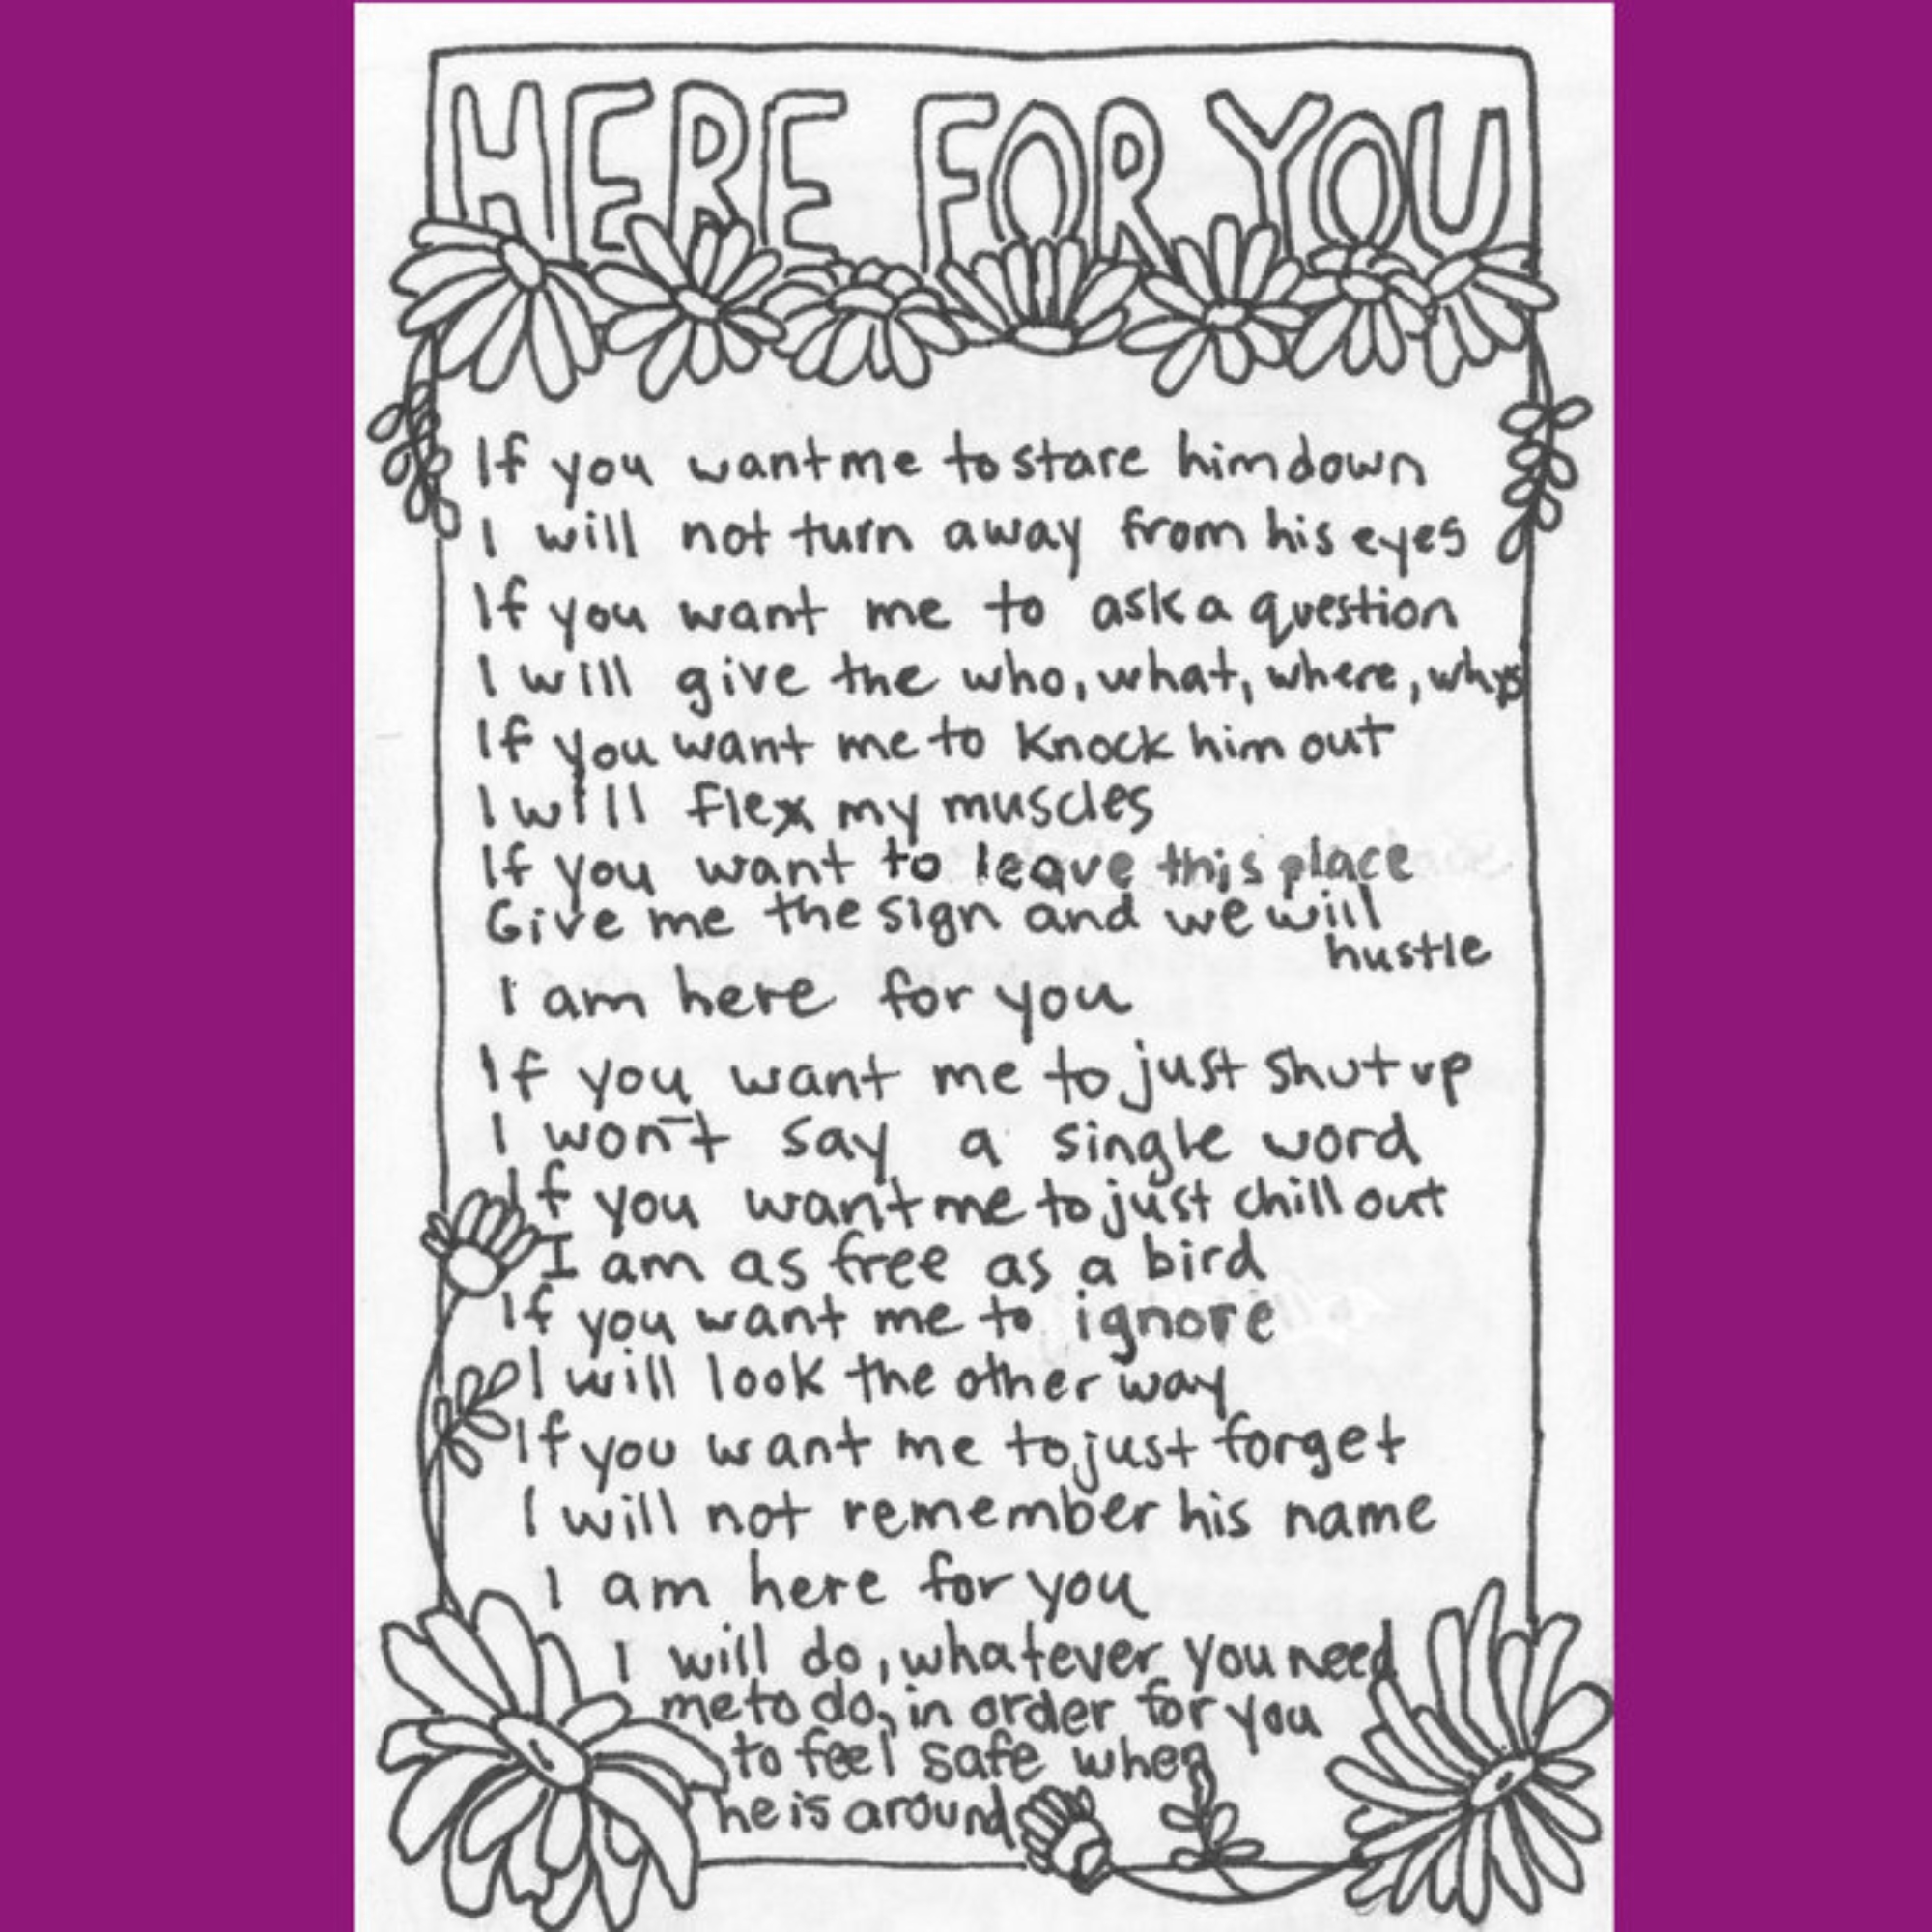 HERE FOR YOU
If you want me to stare him down
I will not turn away from his eyes
If you want me to ask a question
I will give the who, what, where, whys
If you want me to knock him out
I will flex my muscles
If you want to leave this place
Give me the sign and we will
hustle
I am here for you
If you want me to just shut up
I won't say a single word
If you want me to just chill out
I am as free as a bird
If you want me to ignore
I will look the other way
If you want me to just forget
I will not remember his name
I am here for you
I will do, whatever you need
me to do, in order for you
to feel safe when
he is around